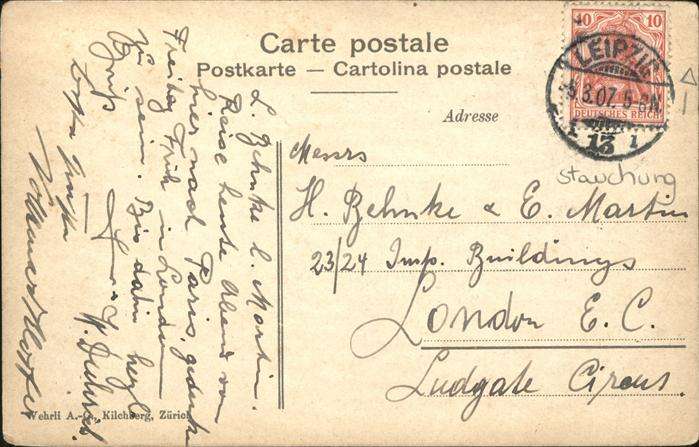 Carte postale
Postkarte — Cartolina postale
Adresse
10 10
DEUTSCHES REICH
LEIPZIG
3.07. 5-6N.
13
Stauchung
Messrs
H. Behnke & E. Martin
23/24 Imp. Buildings
London E.C.
Ludgate Circus.
L. Behnke l. Martin.
Reise heute Abend von
hier nach Paris, gedenke
Freitag Früh in London
zu sein. Bis dahin herzl
Gruß
Wehrli A.-G., Kilchberg, Zürich